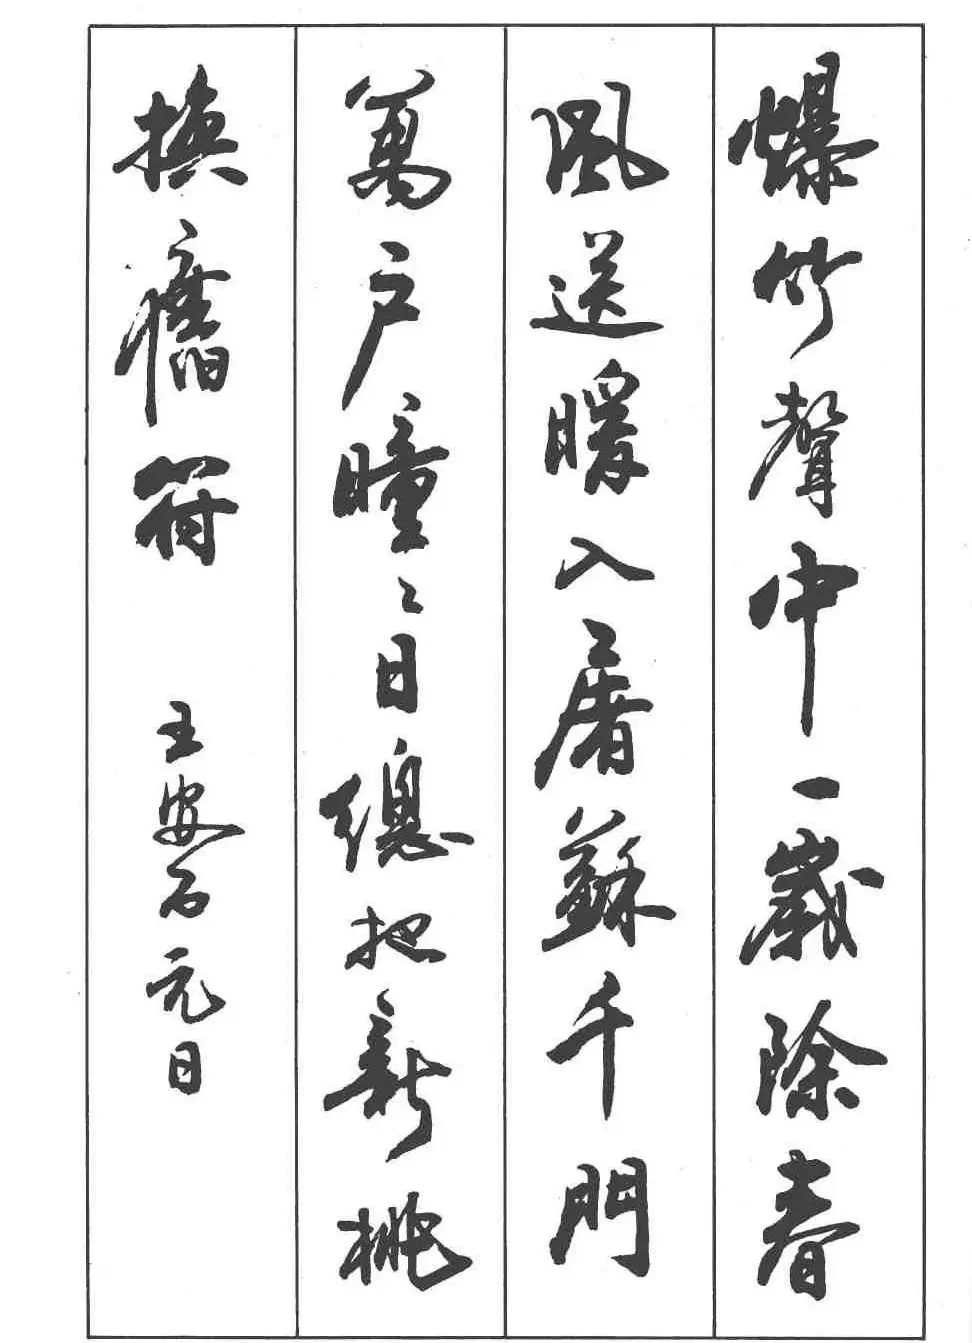 爆竹聲中一歲除春
風送暖入屠蘇千門
萬戶曈〻日總把新桃
換舊符 王安石元日